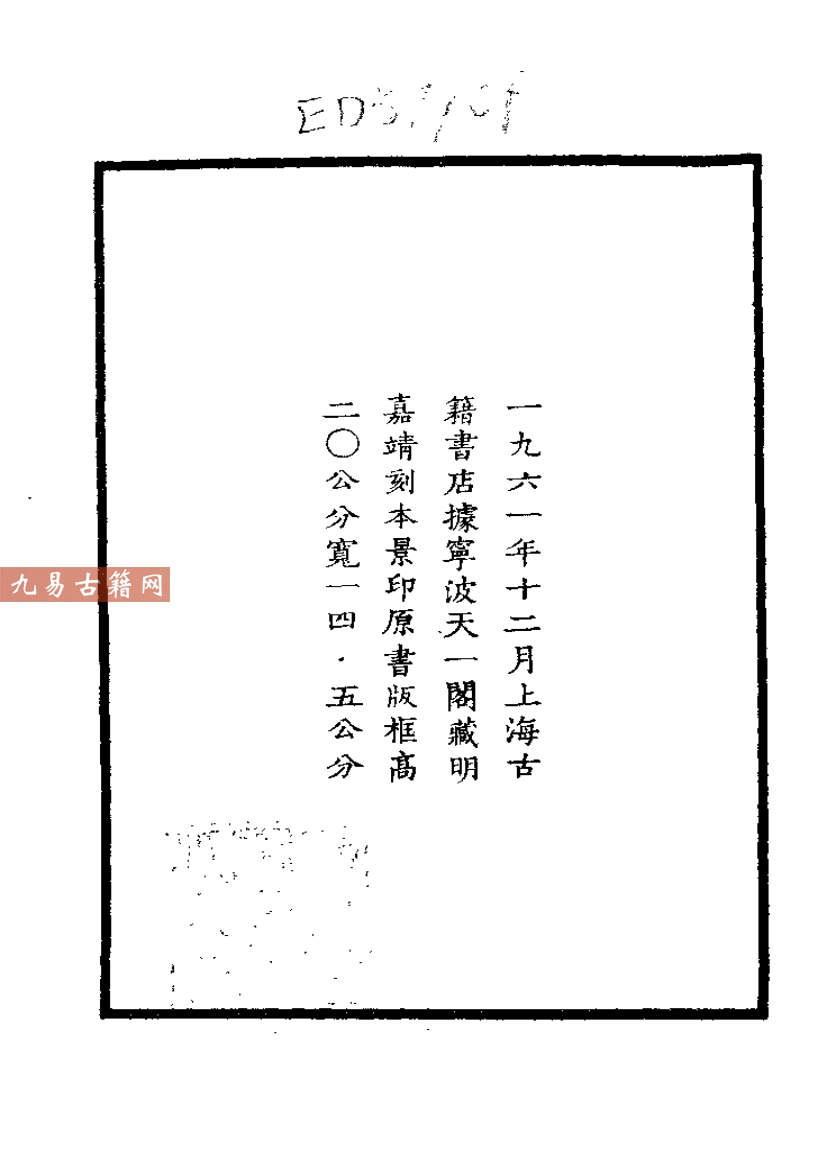 一九六一年十二月上海古
籍書店據寧波天一閣藏明
嘉靖刻本景印原書版框高
二〇公分寬一四·五公分
九易古籍网